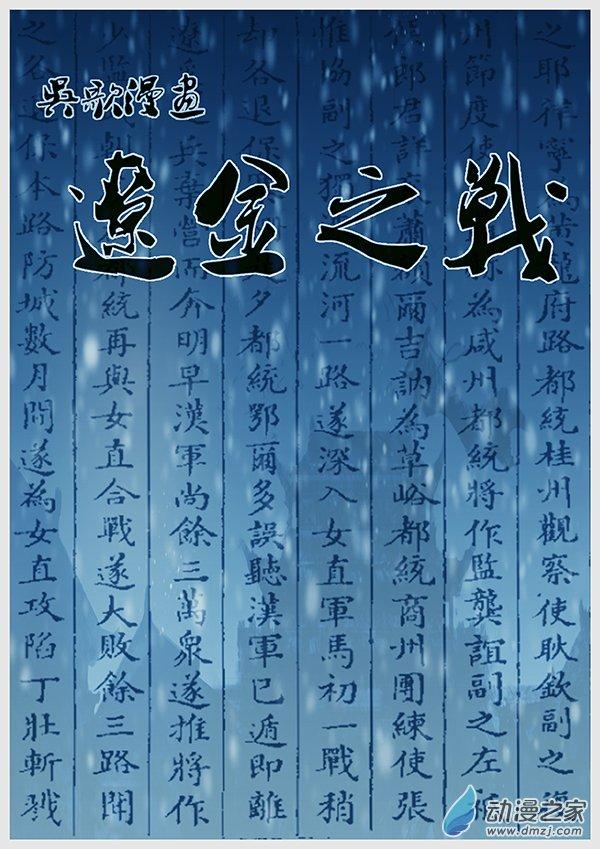 吳歌漫畫
遼金之戰
之耶律寧為黃龍府路都統桂州觀察使耿欽副之
州節度使為咸州都統將作監龔誼副之左祗
候郎君詳袞蕭額爾吉訥為草峪都統商州團練使張
惟協副之獨流河一路遂深入女直軍馬初一戰稍
却各退保是夕都統鄂爾多誤聽漢軍已遁即離
遼兵棄營而奔明早漢軍尚餘三萬眾遂推將作
少監朝都統再與女直合戰遂大敗餘三路聞
之各退保本路防城數月間遂為女直攻陷丁壯斬戮
动漫之家
www.dmzj.com